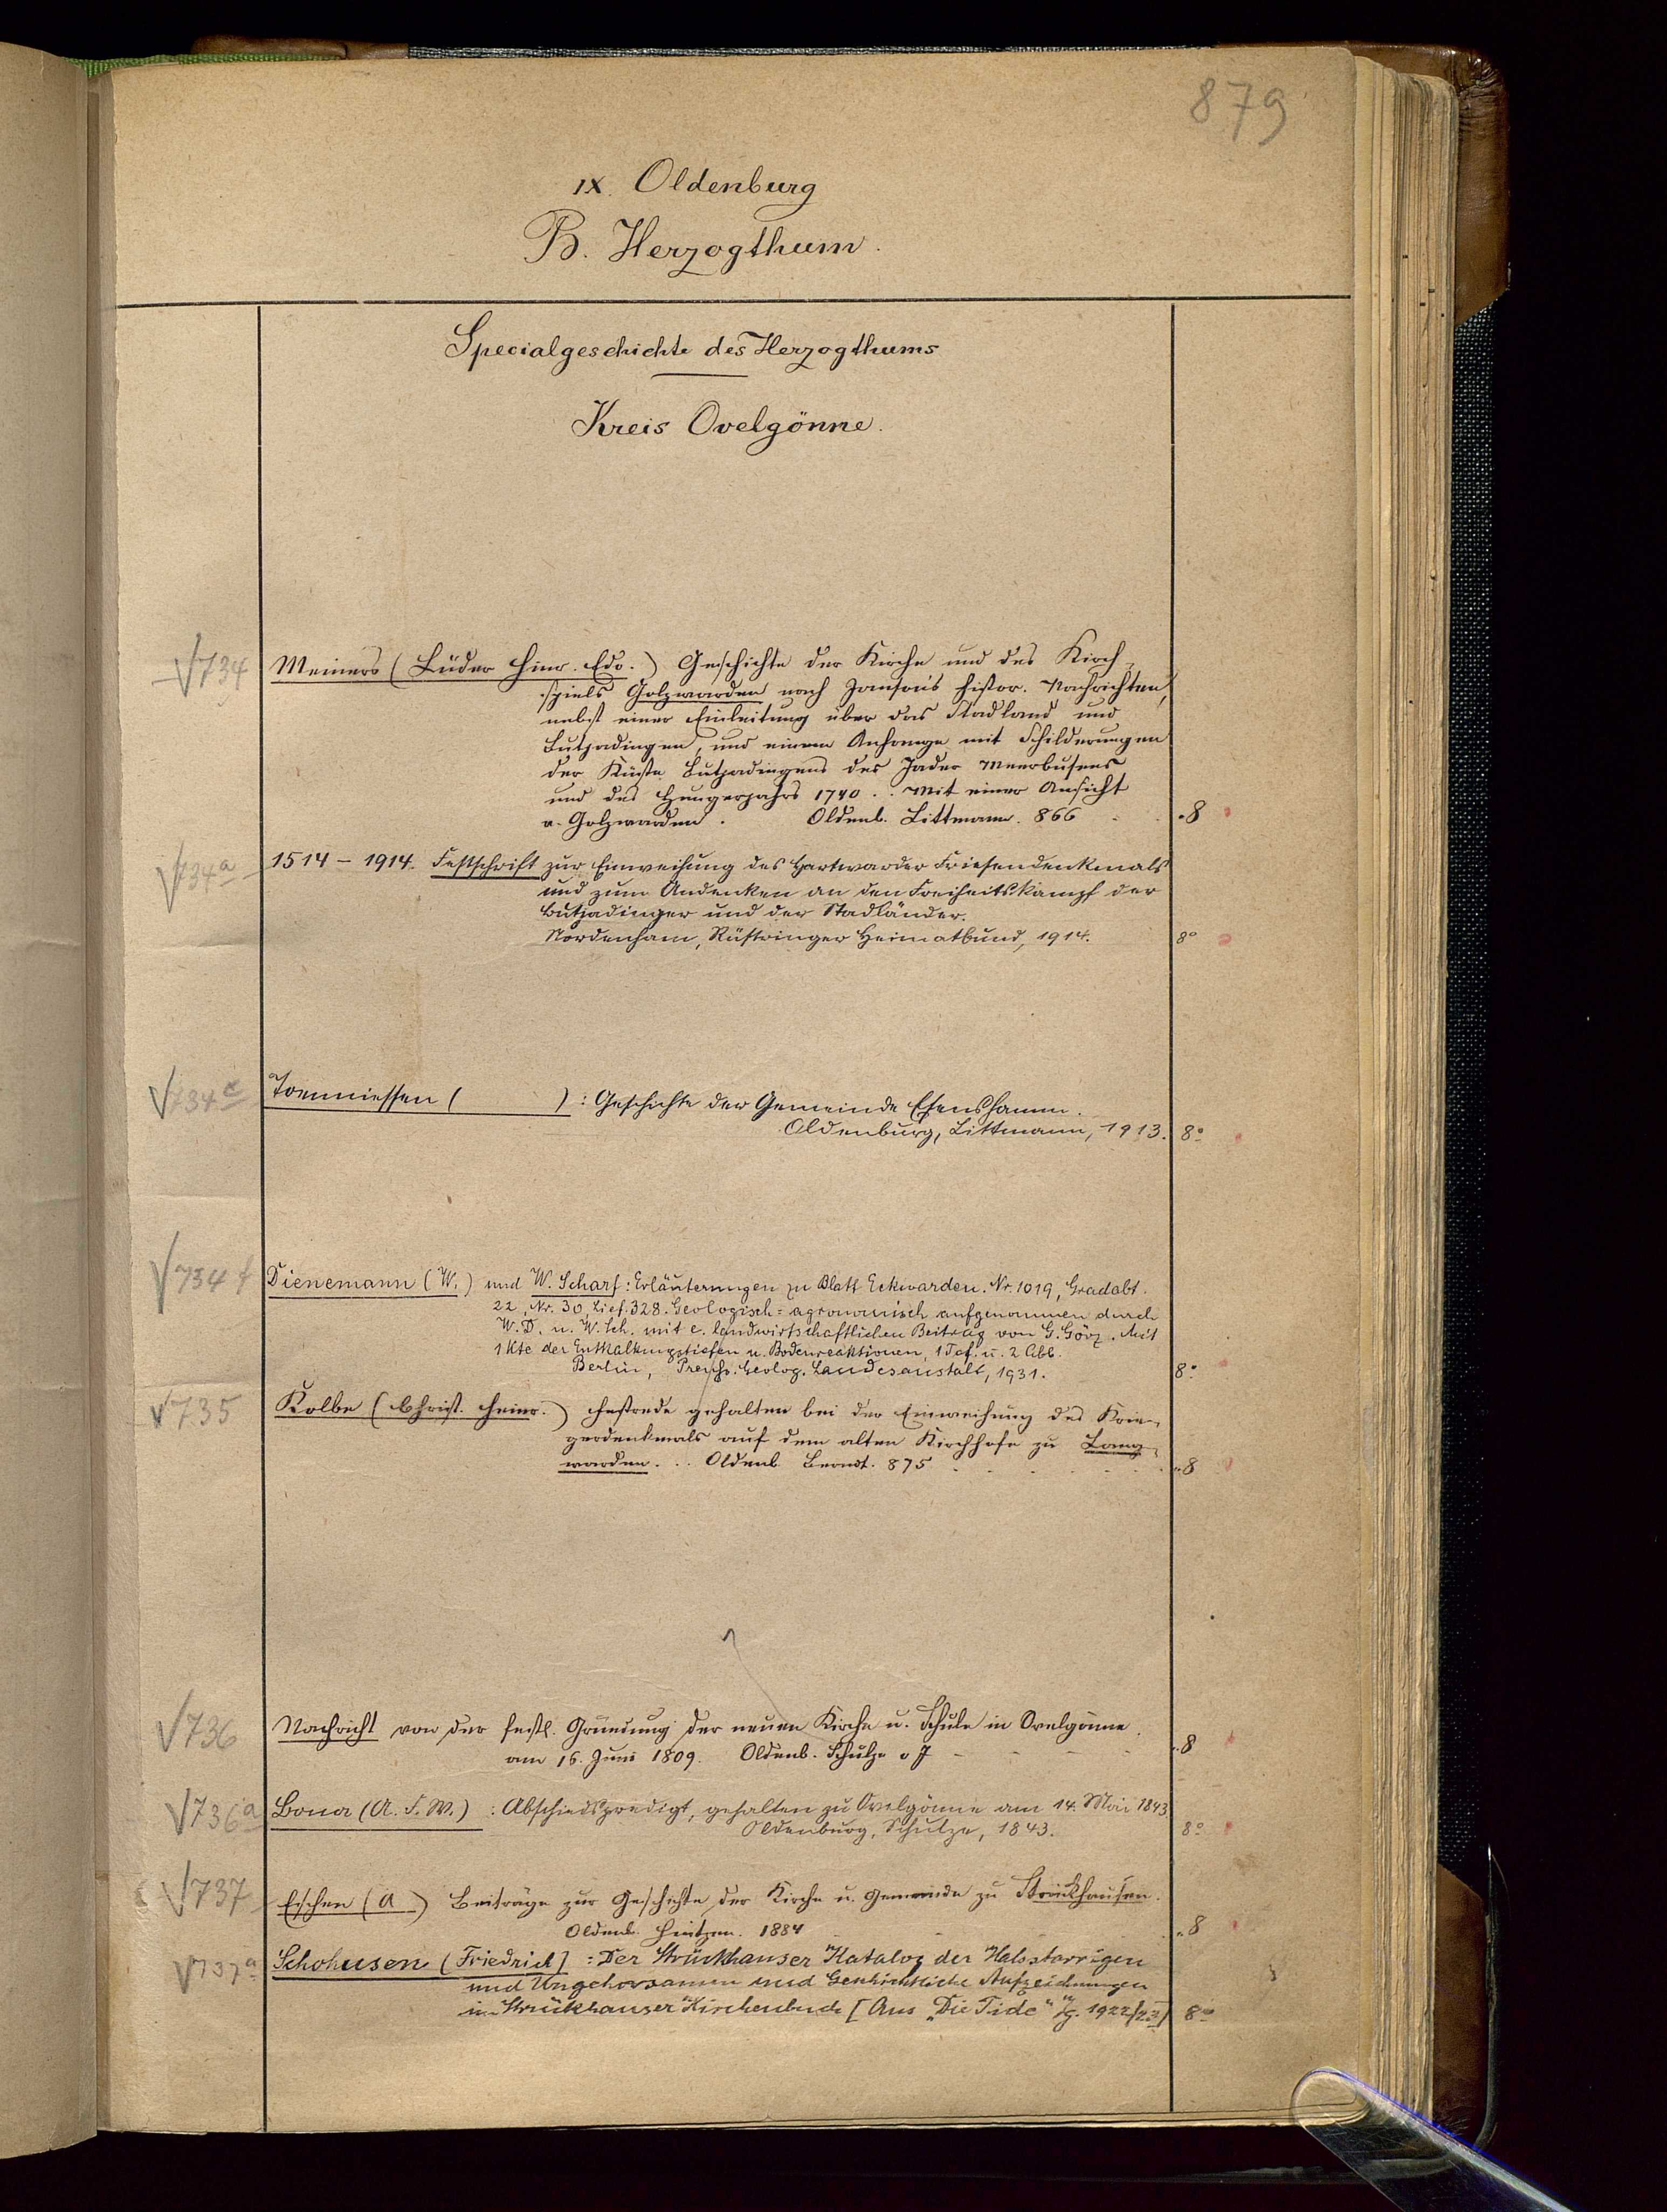 879
IX. Oldenburg
B. Herzogthum.
Specialgeschichte des Herzogthums
Kreis Ovelgönne.
734 Meiners (Lüder Hinr. Edo.) Geschichte der Kirche und des Kirch-
spiels Golzwarden nach Janson's histor. Nachrichten,
nebst einer Einleitung über das Stadland und
Butjadingen, und einem Anhange mit Schilderungen
der Küste Butjadingens des Jader Meerbusens
und des Hungerjahrs 1740 .. Mit einer Ansicht
v. Golzwarden. Oldenb. Littmann. 866 8
734a 1514 – 1914. Festschrift zur Einweihung des Hartwarder Friesendenkmals
und zum Andenken an den Freiheitskampf der
Butjadinger und der Stadländer.
Nordenham, Rüstringer Heimatbund, 1914. 8°
734e Toenniessen ( ): Geschichte der Gemeinde Esenshamm.
Oldenburg, Littmann, 1913. 8°
734f Dienemann (W.) und W. Scharf: Erläuterungen zu Blatt Eckwarden. Nr. 1019, Gradabt.
22, Nr. 30, Lief. 328. Geologisch-agronomisch aufgenommen durch
W. D. u. W. Sch. mit e. landwirtschaftlichen Beitrag von G. Görz. Mit
1 Kte der Entkalkungstiefen u. Bodenreaktionen, 1 Taf. u. 2 Abb.
Berlin, Preuß. Geolog. Landesanstalt, 1931. 8°
735 Kolbe (Christ. Heinr.) Festrede gehalten bei der Einweihung des Krie-
gerdenkmals auf dem alten Kirchhofe zu Lang-
warden. .. Oldenb. Berndt. 875 8
736 Nachricht von der festl. Gründung der neuen Kirche u. Schule in Ovelgönne
am 16. Juni 1809. Oldenb. Schulze o J 8
736a (A. F. W.): Abschiedspredigt, gehalten zu Ovelgönne am 14. Mai 1843
Oldenburg, Schulze, 1843. 8°
737 Eschen (A.) Beiträge zur Geschichte der Kirche u. Gemeinde zu Strückhausen.
Oldenb. Hintzen. 1884 8
737a Schohusen (Friedrich): Der Strückhauser Katalog der Halsstarrigen
und Ungehorsamen und Geschichtliche Aufzeichnungen
im Strückhauser Kirchenbuch [Aus „Die Tide" Jg. 1922/23] 8°